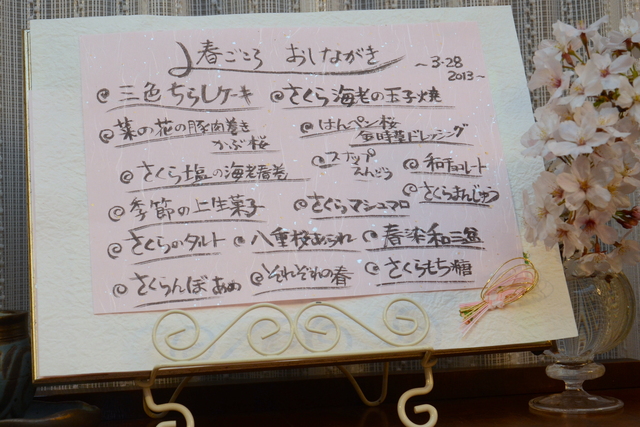 春ごころ おしながき ～3・28 2013～
@ 三色ちらしケーキ @ さくら海老の玉子焼
@ 菜の花の豚肉巻き かぶ桜
@ はんペン桜 ドレッシング
@ さくら塩の海老春巻
@ スナップえんどう
@ 和チョコレート
@ さくらまんじゅう
@ 季節の上生菓子
@ さくらマシュマロ
@ さくらのタルト @ 八重桜あられ @ 春染和三盆
@ さくらんぼあめ @ それぞれの春 @ さくらもち